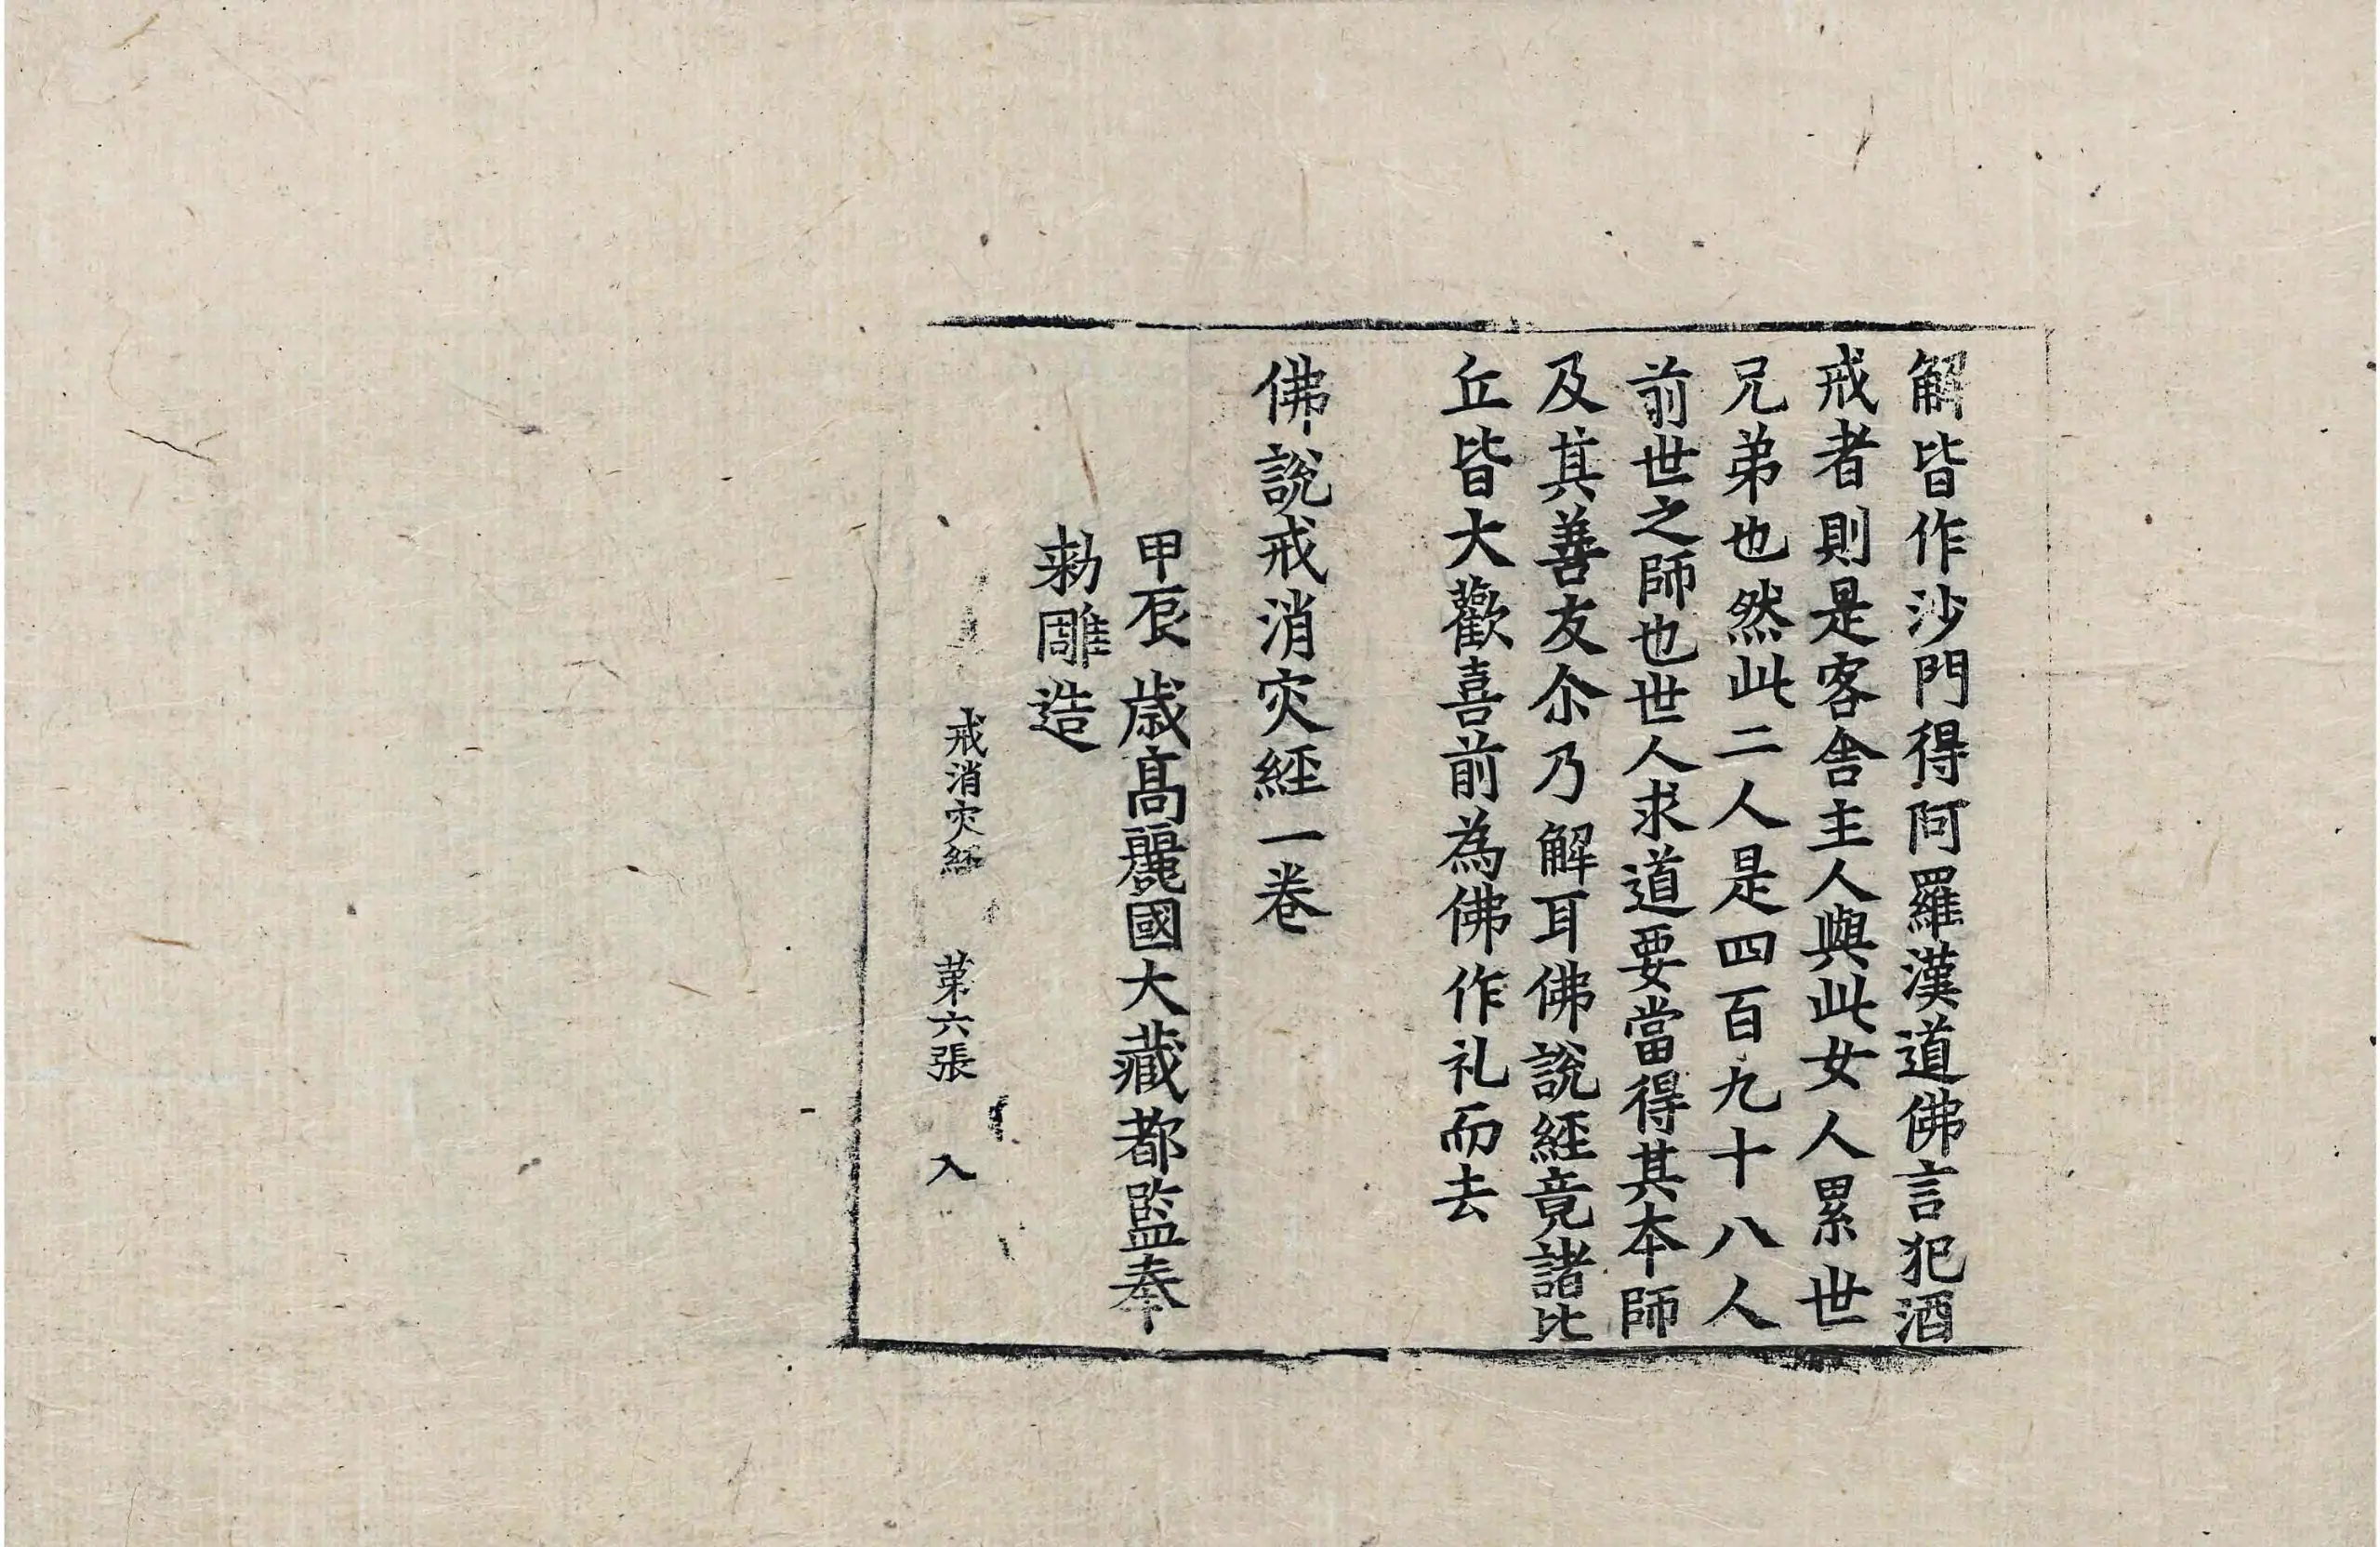 解皆作沙門得阿羅漢道佛言犯酒
戒者則是客舍主人與此女人累世
兄弟也然此二人是四百九十八人
前世之師也世人求道要當得其本師
及其善友尒乃解耳佛說經竟諸比
丘皆大歡喜前為佛作礼而去
佛說戒消灾經一卷
甲辰歳高麗國大藏都監奉
勅雕造
戒消灾經 苐六張 入